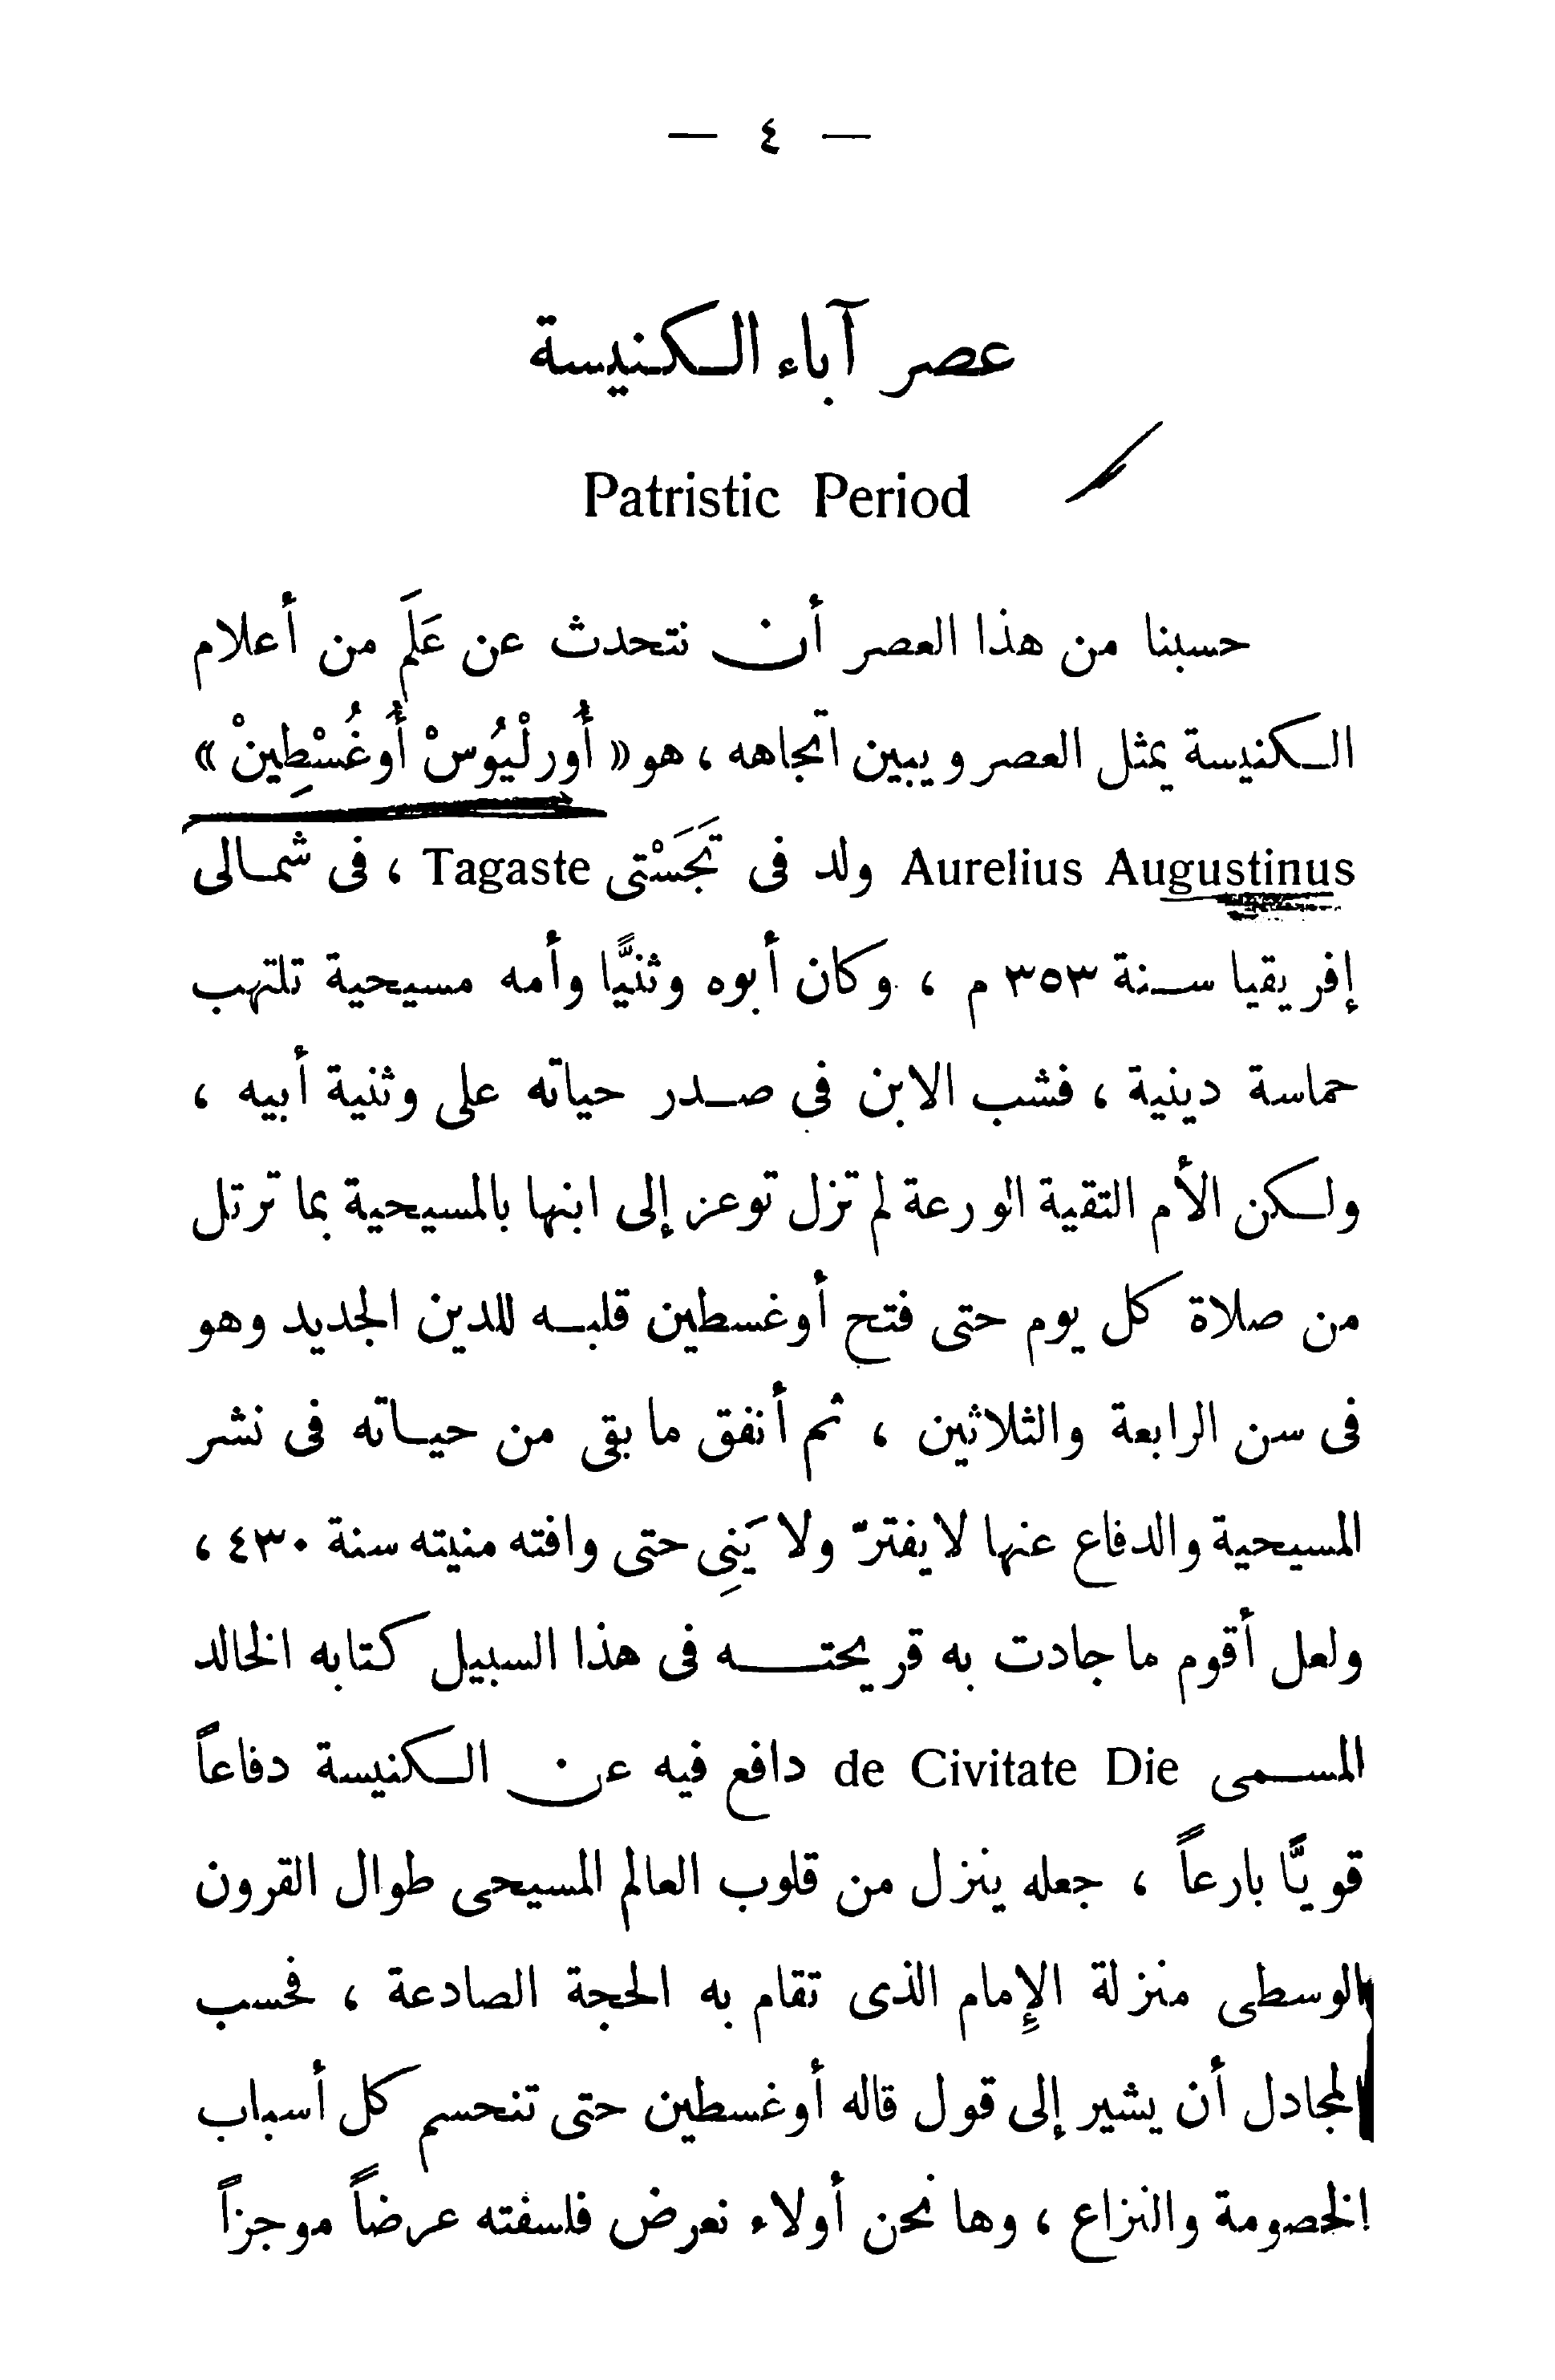 — ٤ —
عصر آباء الكنيسة
Patristic Period
حسبنا من هذا العصر أن نتحدث عن عَلَم من أعلام
الكنيسة يمثل العصر ويبين اتجاهه ، هو « أُورِلْيُوسْ أُوغُسْطِينْ »
Aurelius Augustinus ولد فى تَجَسْتى Tagaste ، فى شمالى
إفريقيا سنة ٣٥٣ م ، وكان أبوه وثنيًّا وأمه مسيحية تلتهب
حماسة دينية ، فشب الابن فى صدر حياته على وثنية أبيه ،
ولكن الأم التقية الورعة لم تزل توعز إلى ابنها بالمسيحية بما ترتل
من صلاة كل يوم حتى فتح أوغسطين قلبه للدين الجديد وهو
فى سن الرابعة والثلاثين ، ثم أنفق ما بقى من حياته فى نشر
المسيحية والدفاع عنها لا يفترّ ولا يَنِى حتى وافته منيته سنة ٤٣٠ ،
ولعل أقوم ما جادت به قريحته فى هذا السبيل كتابه الخالد
المسمى de Civitate Die دافع فيه عن الكنيسة دفاعاً
قويًّا بارعاً ، جعله ينزل من قلوب العالم المسيحى طوال القرون
الوسطى منزلة الإمام الذى تقام به الحجة الصادعة ، فحسب
المجادل أن يشير إلى قول قاله أوغسطين حتى تنحسم كل أسباب
الخصومة والنزاع ، وها نحن أولاء نعرض فلسفته عرضاً موجزاً